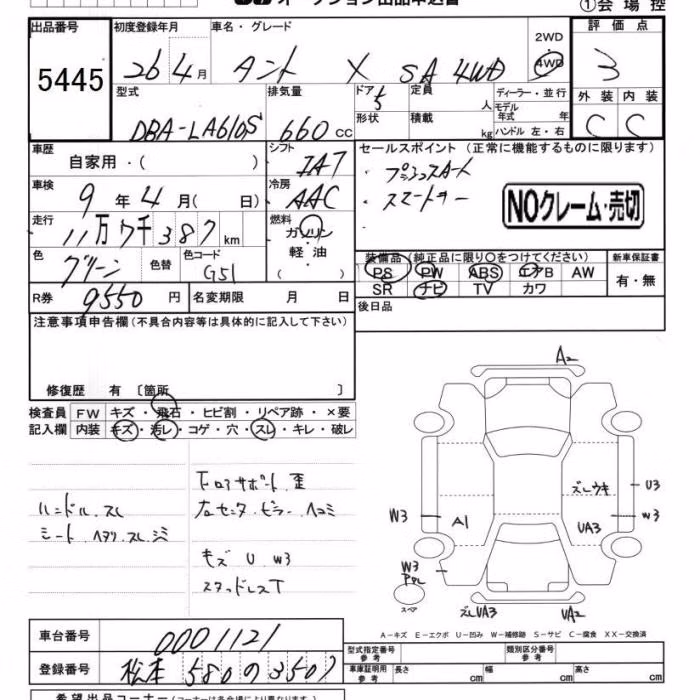 オークション出品申込書
①会場控
出品番号
5445
初度登録年月
26年4月
車名・グレード
タント X SA 4WD
2WD
4WD
評価点
3
外装 内装
C C
型式
DBA-LA610S
排気量
660 cc
ドア 5
形状
定員 人
積載 kg
ディーラー・並行
モデル年式 年
ハンドル 左・右
車歴
自家用・( )
シフト
IAT
セールスポイント (正常に機能するものに限ります)
・プッシュスタート
・スマートキー
・
NOクレーム・売切
車検
9年4月( 日)
冷房
AAC
走行
11万7千387km
燃料
ガソリン
軽・油
( )
色
グリーン
色替
色コード
G51
装備品(純正品に限り○をつけてください)
PS PW ABS エアB AW
SR ナビ TV カワ
新車保証書
有・無
R券 9550円
名変期限 月 日
後日品
注意事項申告欄(不具合内容等は具体的に記入して下さい)
修復歴 有 〔箇所 〕
検査員 FW キズ・飛石・ヒビ割・リペア跡・×要
記入欄 内装 キズ・汚レ・コゲ・穴・スレ・キレ・破レ
下回りサポート歪
左センターピラーヘコミ
ハンドル スレ
シート ヘタリ スレ シミ
キズ U W3
スタッドレスT
A2
ズレウキ
U3
W3
W3
A1
UA3
W3
スペア
ズレUA3
UA2
A-キズ E-エクボ U-凹み W-補修跡 S-サビ C-腐食 XX-交換済
車台番号
0001121
登録番号
松本 580 の 3507
型式指定番号
参考
類別区分番号
参考
車庫証明用
参考
長さ cm
幅 cm
高さ cm
希望出品コーナー(コーナーは各会場により異なります)